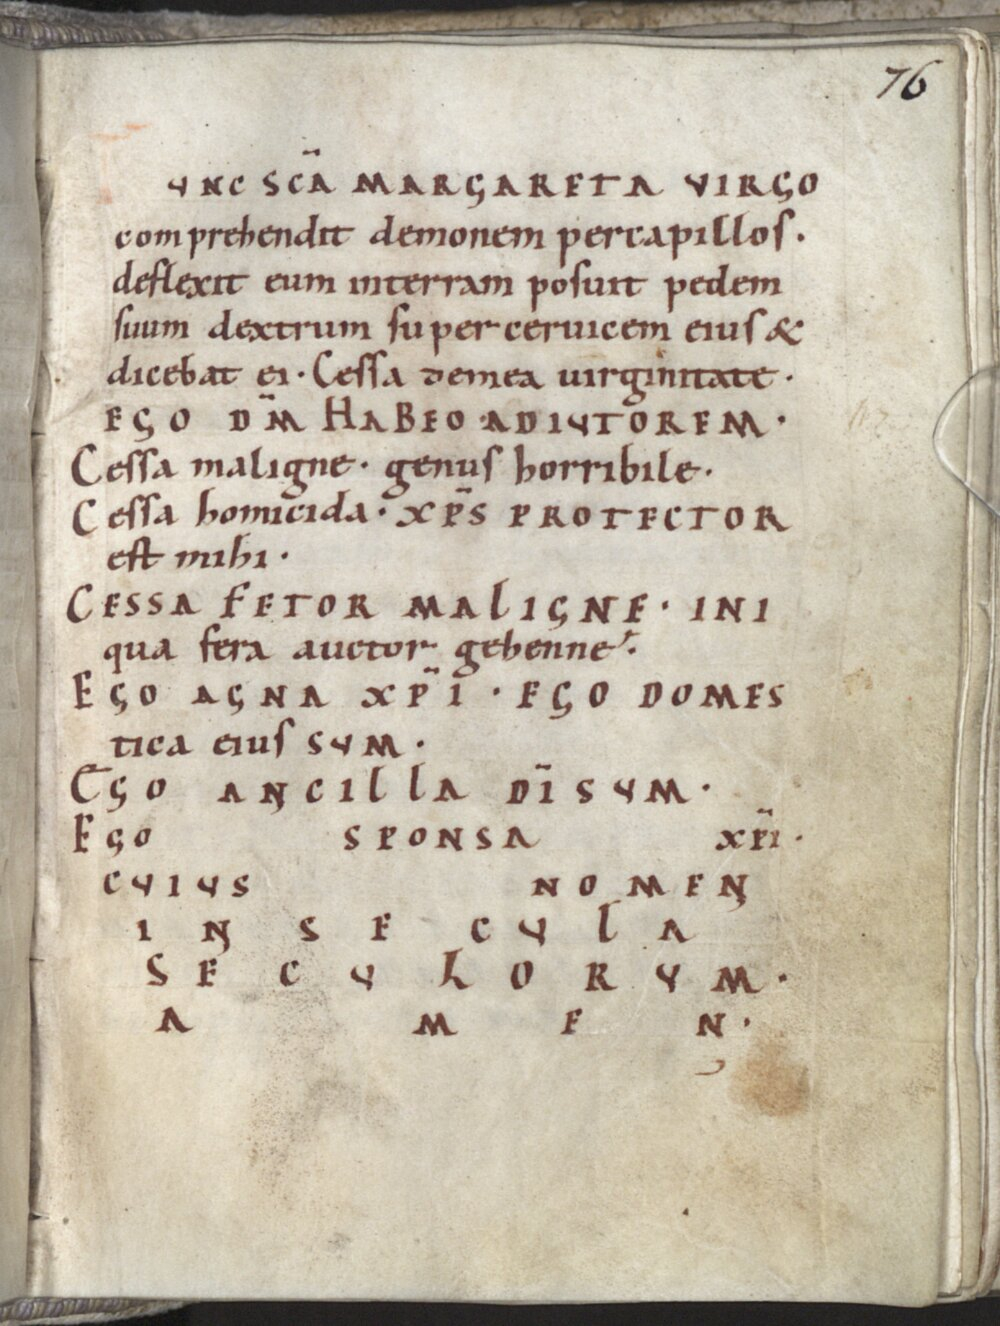 76
VNC SC̄A MARGARETA VIRGO
comprehendit demonem per capillos.
deflexit eum in terram posuit pedem
suum dextrum super ceruicem eius &
dicebat ei. Cessa de mea uirginitate.
EGO DM̄ HABEO ADIVTOREM.
Cessa maligne. genus horribile.
Cessa homicida. XP̄S PROTECTOR
est mihi.
CESSA FETOR MALIGNE. INI
qua fera auctor gehenne.
EGO AGNA XP̄I. EGO DOMES
tica eius SVM.
EGO ANCILLA DĪ SVM.
EGO SPONSA XP̄I.
CVIVS NOMEN
IN SECVLA
SECVLORVM.
AMEN.